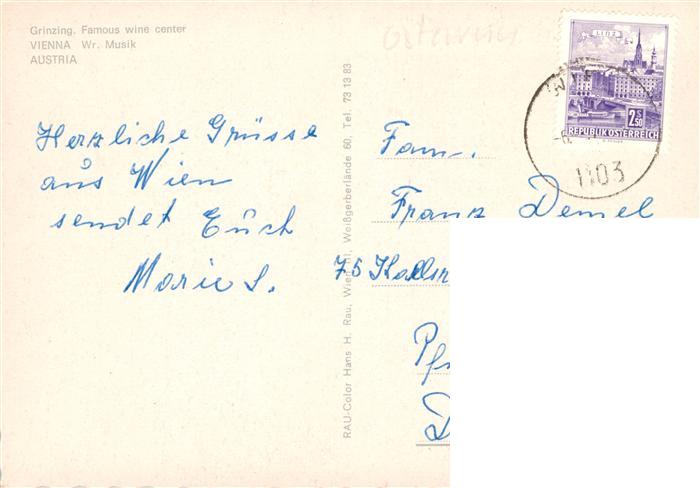 Grinzing. Famous wine center
VIENNA Wr. Musik
AUSTRIA
Herzliche Grüsse
aus Wien
sendet Euch
Marie S.
RAU-Color Hans H. Rau, Wien Weißgerberlände 60, Tel. 73 13 83
Österreich
LINZ
2S50
REPUBLIK ÖSTERREICH
1103
Fam.
Franz Demel
75
Pf
D